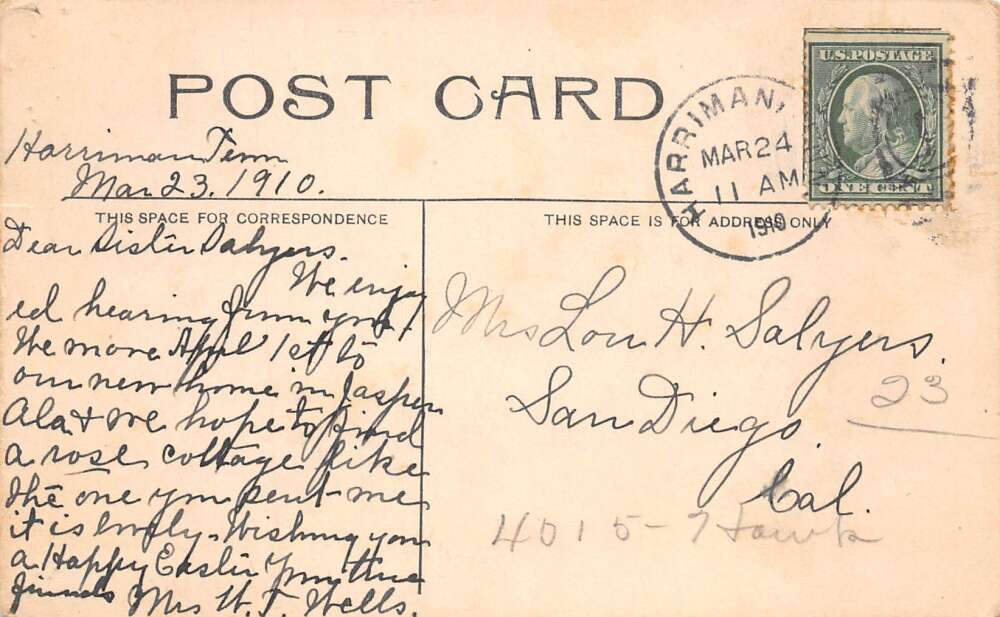 POST CARD
U.S. POSTAGE
ONE CENT
HARRIMAN
MAR 24
11 AM
1910
Harriman Tenn
Mar 23. 1910.
THIS SPACE FOR CORRESPONDENCE
THIS SPACE IS FOR ADDRESS ONLY
Dear Sister Salyers.
We enjoy
ed hearing from you.
We move Apl 1st to
our new home in Jasper
Ala & we hope to find
a rose cottage like
the one you sent me
it is lovely. Wishing you
a Happy Easter Your true
friends Mrs W. T. Wells.
Mrs Lou H. Salyers.
San Diego.
Cal.
23
4015-